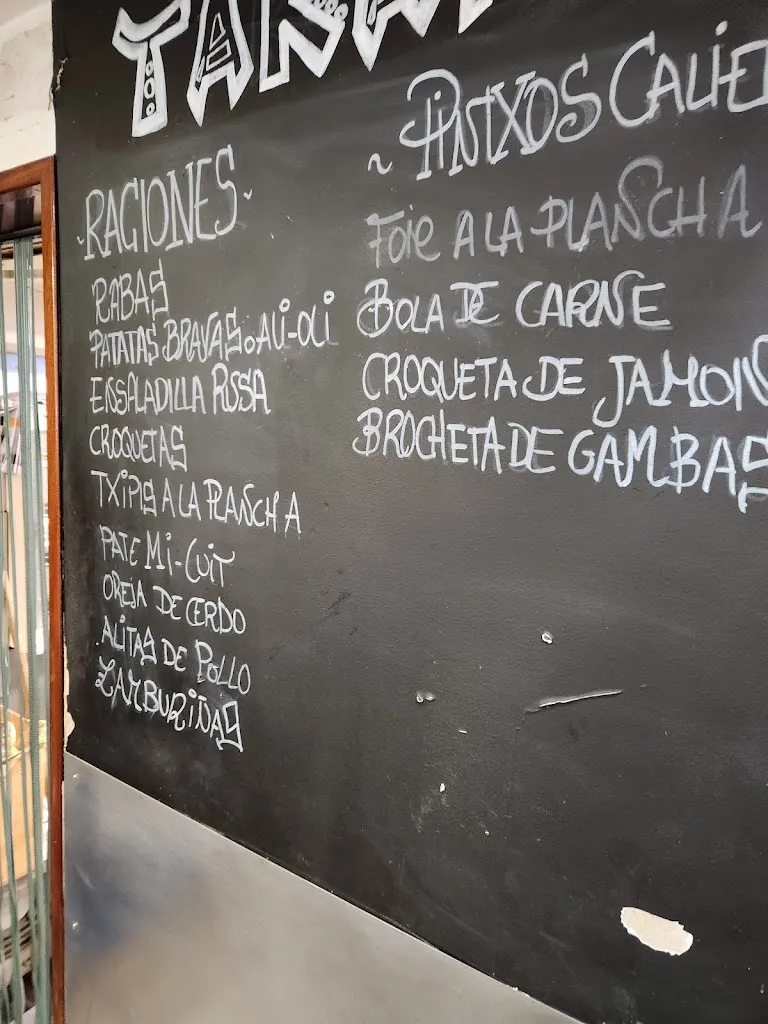 ~RACIONES~
RABAS
PATATAS BRAVAS o ALI-OLI
ENSALADILLA RUSA
CROQUETAS
TXIPIS A LA PLANCHA
PATE MI-CUIT
OREJA DE CERDO
ALITAS DE POLLO
ZAMBURIÑAS
~ PINTXOS CALIE
FOIE A LA PLANCHA
BOLA DE CARNE
CROQUETA DE JAMON
BROCHETA DE GAMBAS